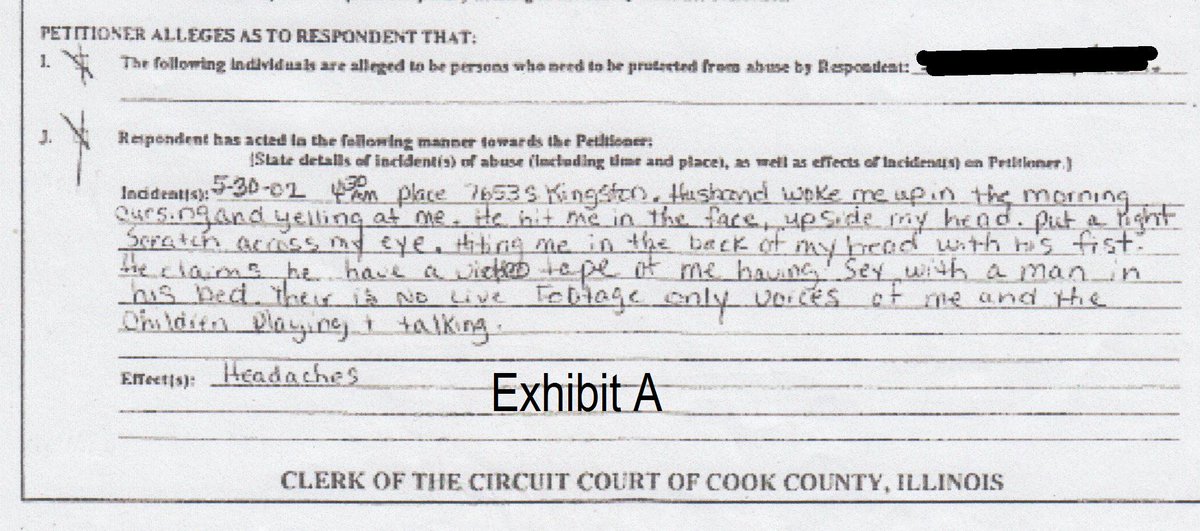 PETITIONER ALLEGES AS TO RESPONDENT THAT:
I. The following individuals are alleged to be persons who need to be protected from abuse by Respondent:
J. Respondent has acted in the following manner towards the Petitioner:
[State details of incident(s) of abuse (including time and place), as well as effects of incident(s) on Petitioner.]
Incident(s): 5-30-02 4:30 AM place 7653 S Kingston. Husband woke me up in the morning
cursing and yelling at me. He hit me in the face, upside my head. put a right
Scratch across my eye. Hiting me in the back of my head with his fist.
He claims he have a tape of me having sex with a man in
his bed. Their is No Live Footage only voices of me and the
Children playing + talking.
Effect(s): Headaches
Exhibit A
CLERK OF THE CIRCUIT COURT OF COOK COUNTY, ILLINOIS